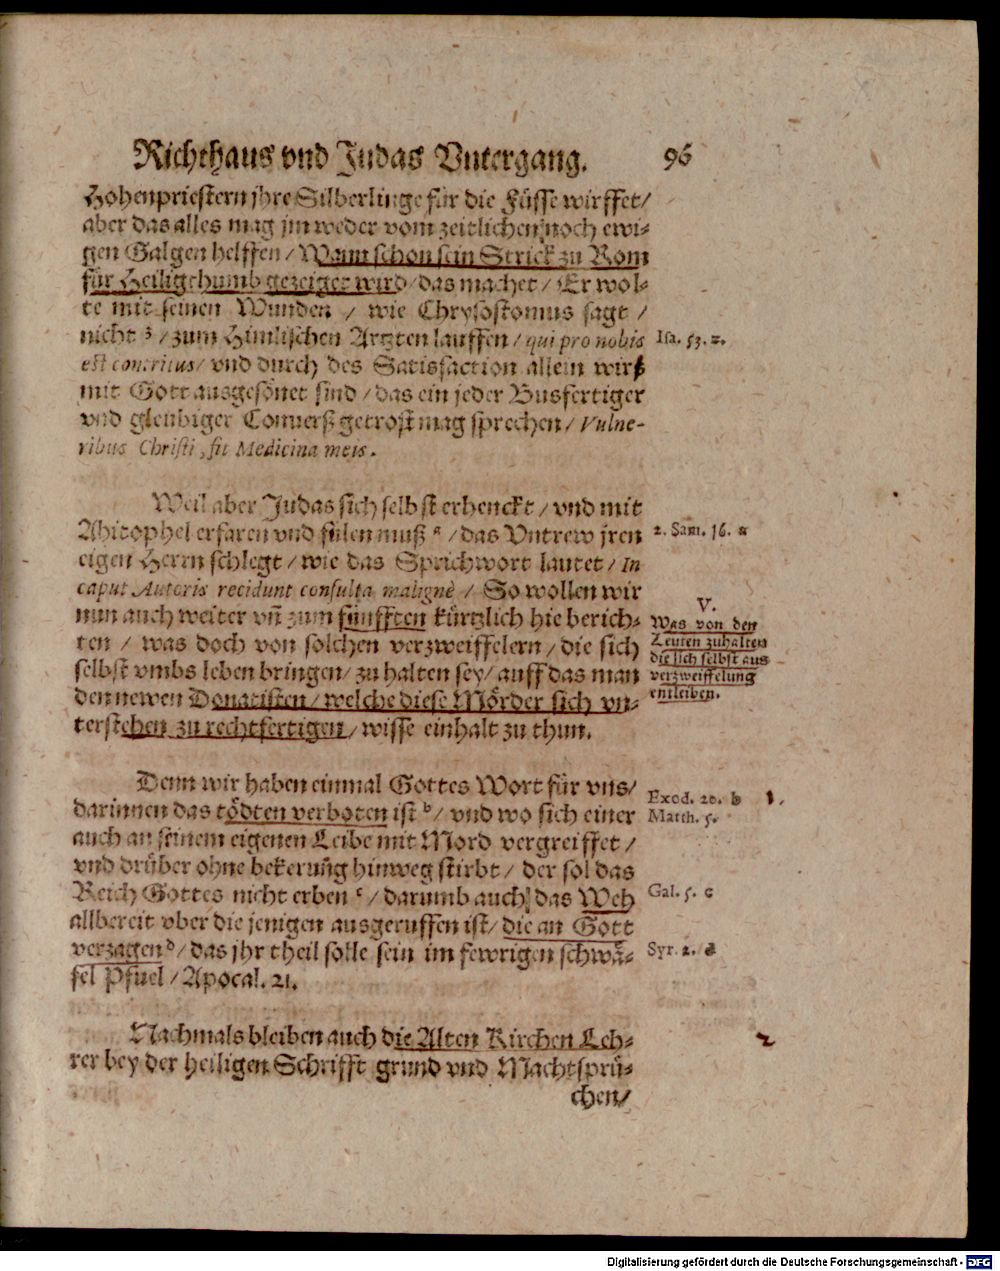 Richthaus vnd Judas Vntergang. 96
Hohenpriestern jhre Silberlinge für die Füsse wirffet/
aber das alles mag jm weder vom zeitlichen noch ewi-
gen Galgen helffen / Wann schon sein Strick zu Rom
für Heiligthumb gezeiget wird / das machet / Er wol-
te mit seinen Wunden / wie Chrysostomus sagt /
nicht z / zum Himlischen Artzten lauffen / qui pro nobis
Isa. 53. z.
est contritus / vnd durch des Satisfaction allein wirß
mit Gott ausgesönet sind / das ein jeder Busfertiger
vnd gleubiger Conuerß getrost mag sprechen / Vulne-
ribus Christi, sit Medicina meis.
Weil aber Judas sich selbst erhenckt / vnd mit
Ahitophel erfaren vnd fülen muß a / das Vntrew jren
2. Sam. 16. a
eigen Herrn schlegt / wie das Sprichwort lautet / In
caput Autoris recidunt consulta malignè / So wollen wir
nun auch weiter vñ zum fünfften kürtzlich hie berich-
ten / was doch von solchen verzweiffelern / die sich
selbst vmbs leben bringen / zu halten sey / auff das man
den newen Donatisten / welche diese Mörder sich vn-
terstehen zu rechtfertigen / wisse einhalt zu thun.
V.
Was von den
Leuten zuhalten
die sich selbst aus
verzweiffelung
entleiben.
Denn wir haben einmal Gottes Wort für vns/
darinnen das tödten verboten ist b / vnd wo sich einer
Exod. 20. b 1.
Matth. 5.
auch an seinem eigenen Leibe mit Mord vergreiffet /
vnd drüber ohne bekerung hinweg stirbt / der sol das
Reich Gottes nicht erben c / darumb auch das Weh
Gal. 5. c
allbereit vber die jenigen ausgeruffen ist / die an Gott
verzagen d / das jhr theil solle sein im fewrigen schwä-
Syr. 2. d
fel Pfuel / Apocal. 21.
Nachmals bleiben auch die Alten Kirchen Leh-
2
rer bey der heiligen Schrifft grund vnd Machtsprü-
chen/
Digitalisierung gefördert durch die Deutsche Forschungsgemeinschaft - DFG